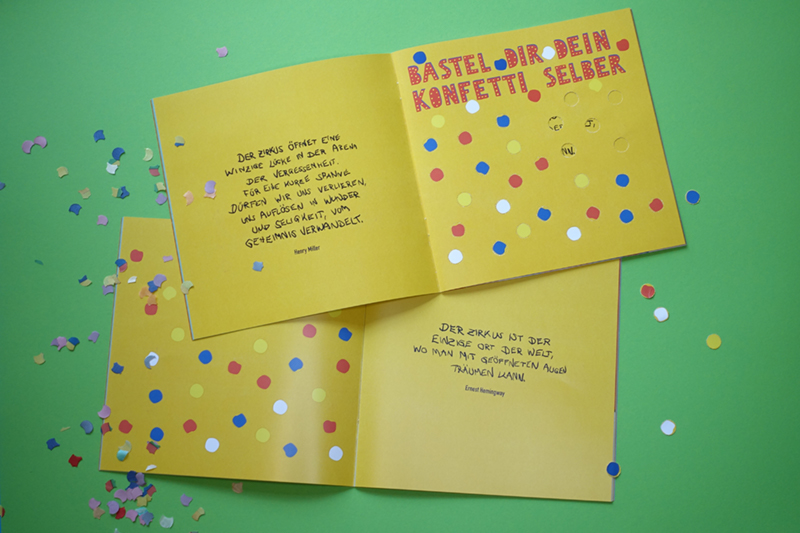 DER ZIRKUS ÖFFNET EINE
WINZIGE LÜCKE IN DER ARENA
DER VERGESSENHEIT.
FÜR EINE KURZE SPANNE
DÜRFEN WIR UNS VERLIEREN,
UNS AUFLÖSEN IN WUNDER
UND SELIGKEIT, VOM
GEHEIMNIS VERWANDELT.
Henry Miller
BASTEL DIR DEIN
KONFETTI SELBER
DER ZIRKUS IST DER
EINZIGE ORT DER WELT,
WO MAN MIT GEÖFFNETEN AUGEN
TRÄUMEN KANN.
Ernest Hemingway